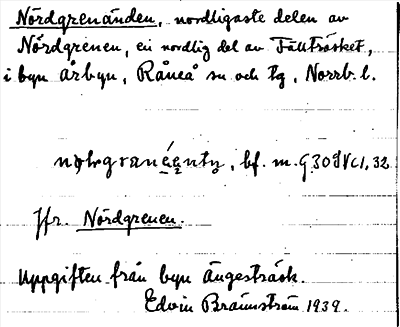 Nördgrenänden, nordligaste delen av
Nördgrenen, en nordlig del av Fällträsket,
i byn Årbyn, Råneå sn och tg, Norrb. l.
bf. m.
Jfr. Nördgrenen.
Uppgiften från byn Ängesträsk.
Edvin Brännström 1939.